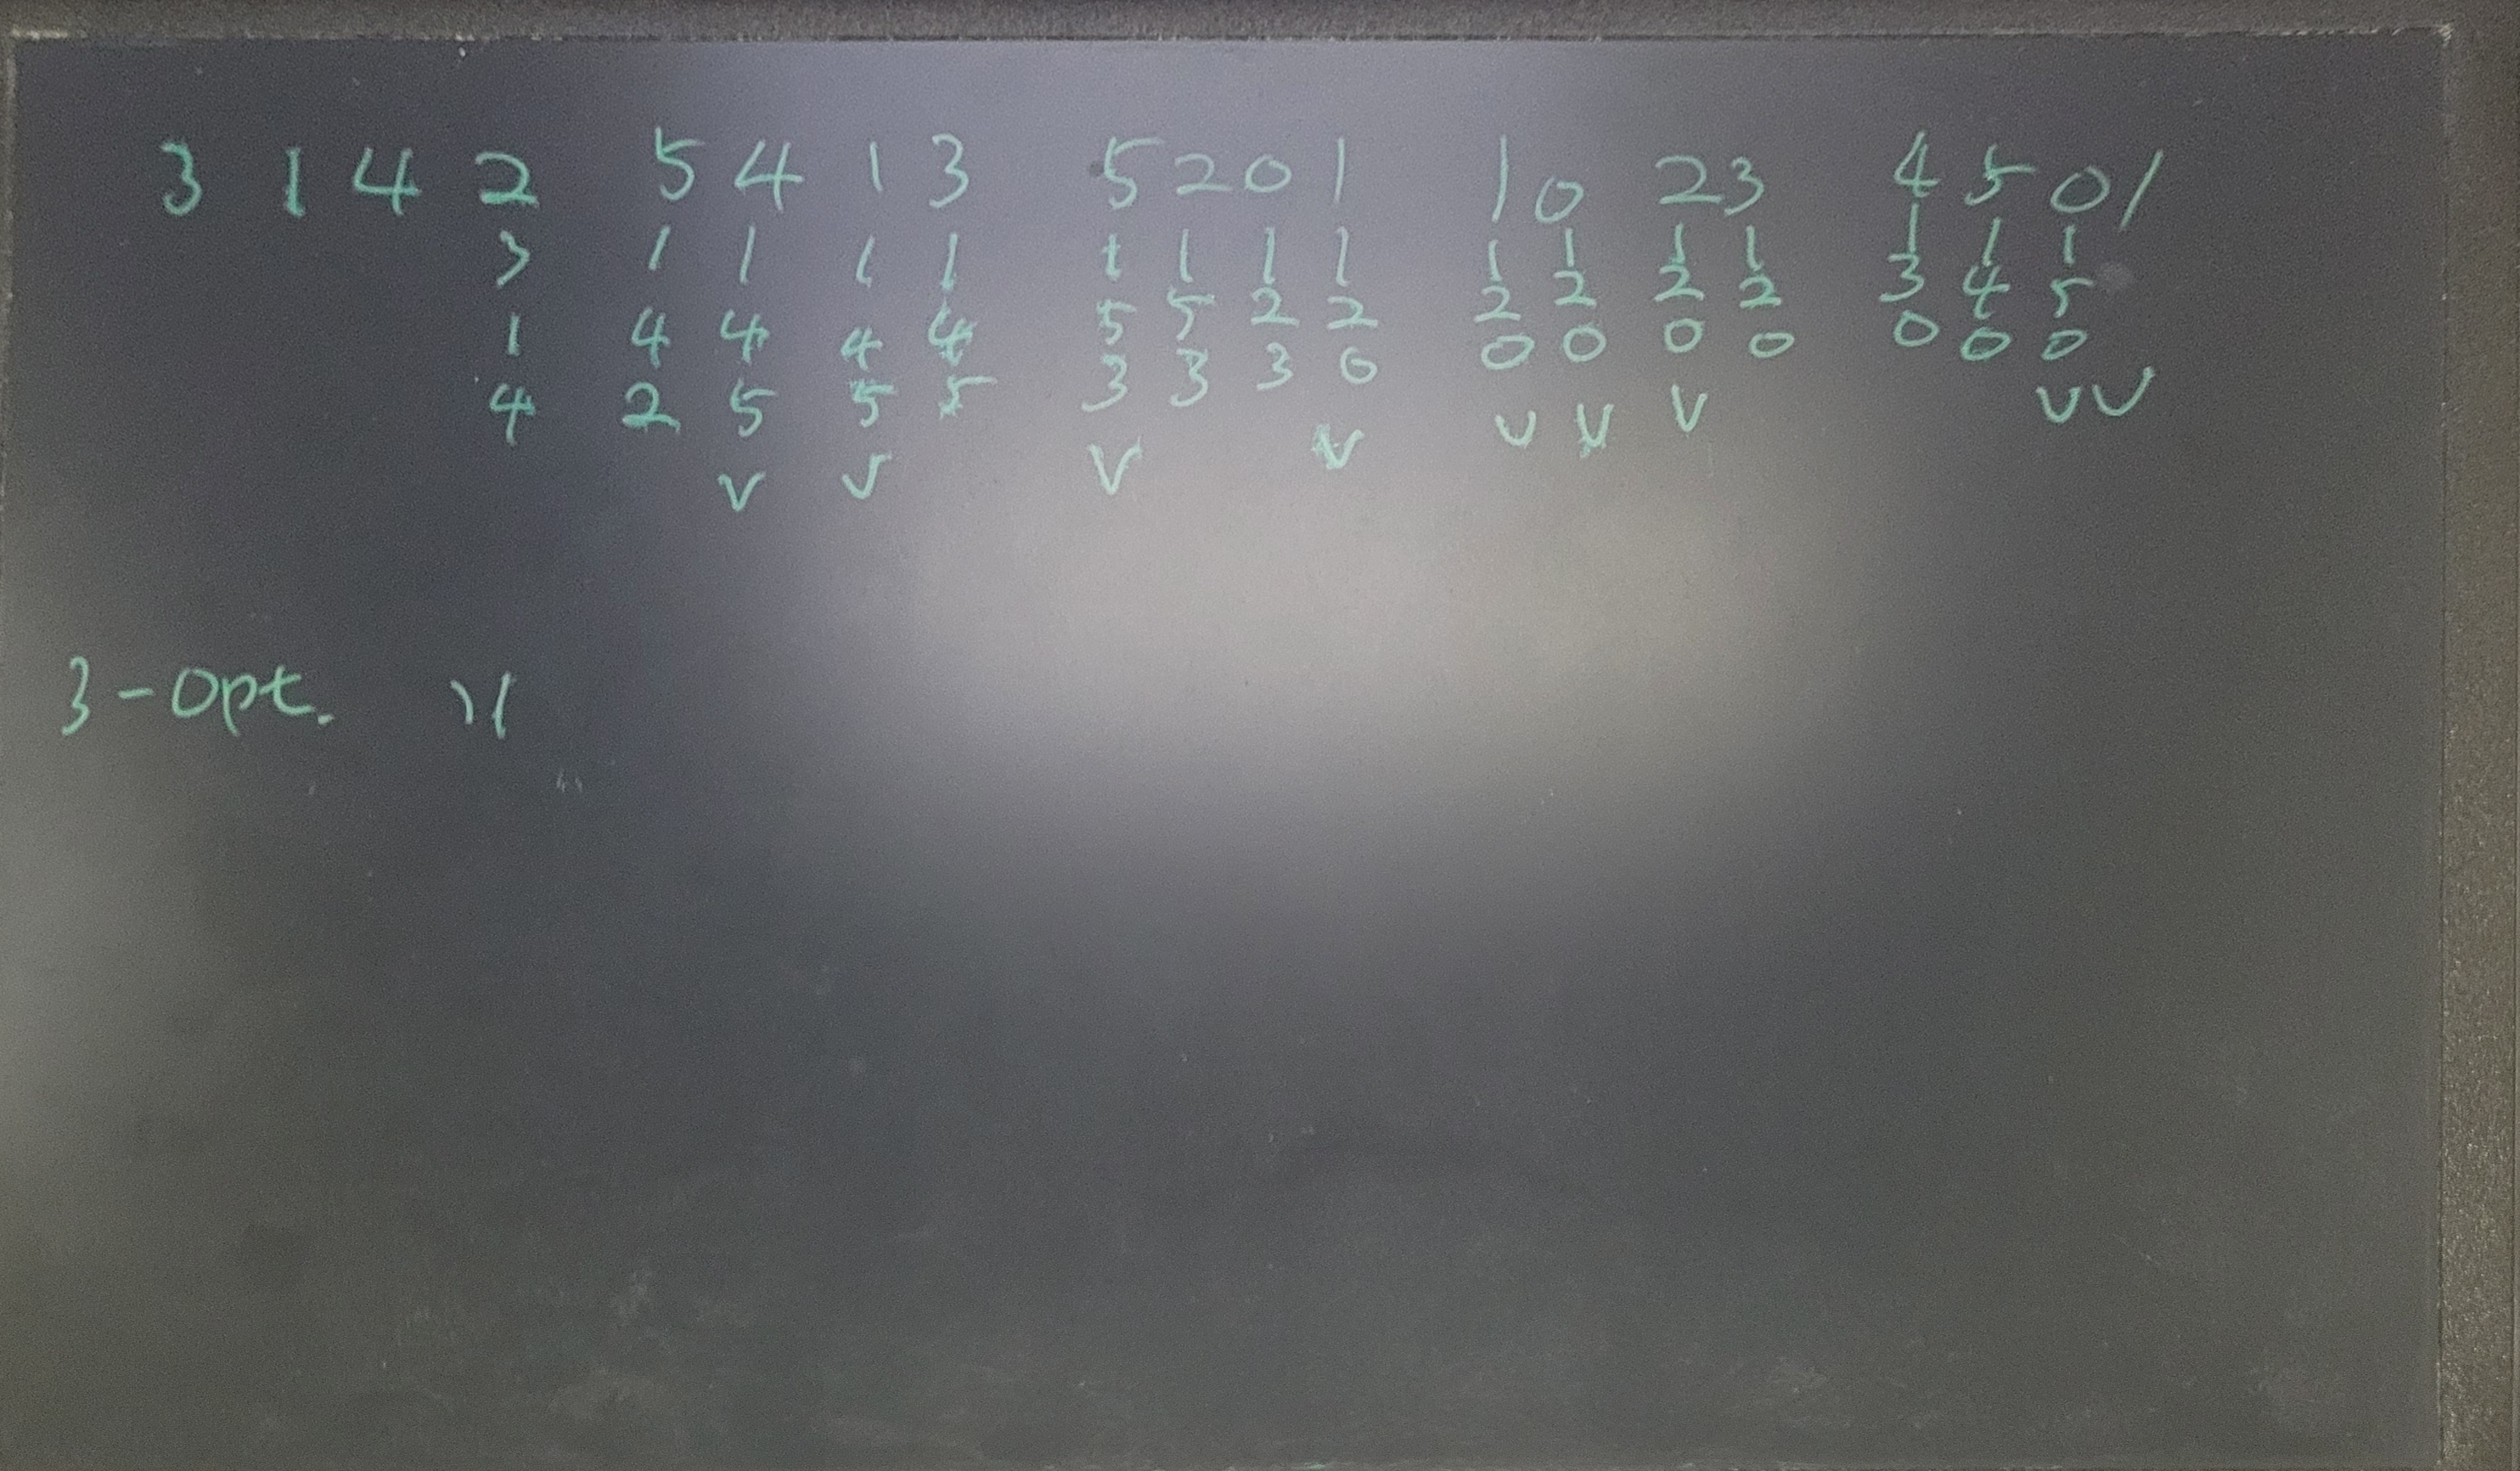 3 1 4 2 5 4 1 3 5 2 0 1 1 0 2 3 4 5 0 1
3 1 1 1 1 1 1 1 1 1 1 1 1 1 1 1
1 4 4 4 4 5 5 2 2 2 2 2 2 3 4 5
4 2 5 5 5 3 3 3 0 0 0 0 0 0 0 0
v v v v v v v v v
3-opt. 11